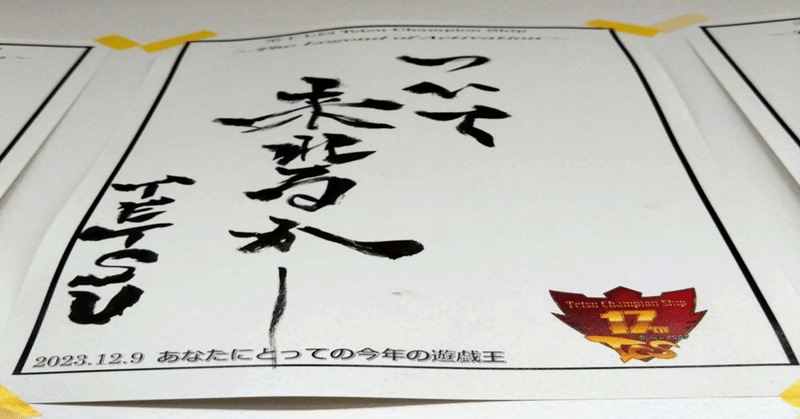 Tetsu Champion Ship
~The Legend of Activation~
ついて
来れるかー
TETSU
Tetsu Champion Ship
17TH
TCS
2023.12.9 あなたにとっての今年の遊戯王